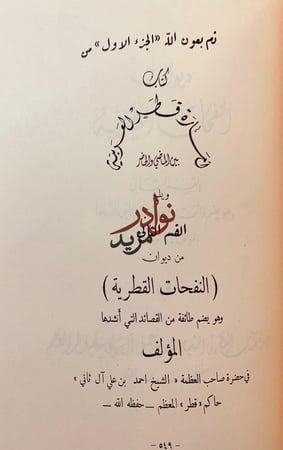 تم بعون الله «الجزء الاول» من
كتاب
إمارة قطر العربية
بين الماضي والحاضر
ويليه
القسم
نوادر
مزيد
من ديوان
( النفحات القطرية )
وهو يضم طائفة من القصائد التي أنشدها
المؤلف
في حضرة صاحب العظمة «الشيخ احمد بن علي آل ثاني»
حاكم «قطر» المعظم – حفظه الله –
– ٥٤٩ –